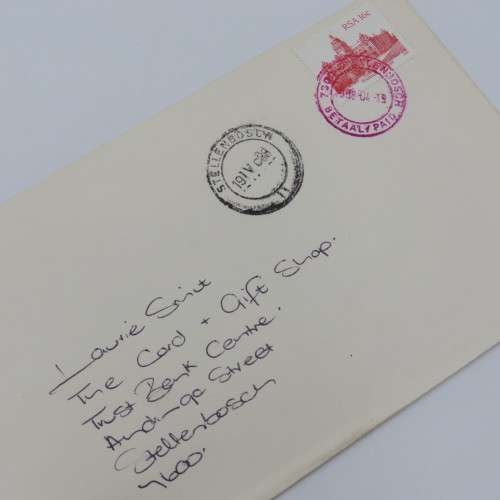 RSA 16c
STELLENBOSCH
BETAAL/PAID
STELLENBOSCH
19 IV
11
Laurie Smit
The Card + Gift Shop.
Trust Bank Centre.
Andringa Street
Stellenbosch
7600.